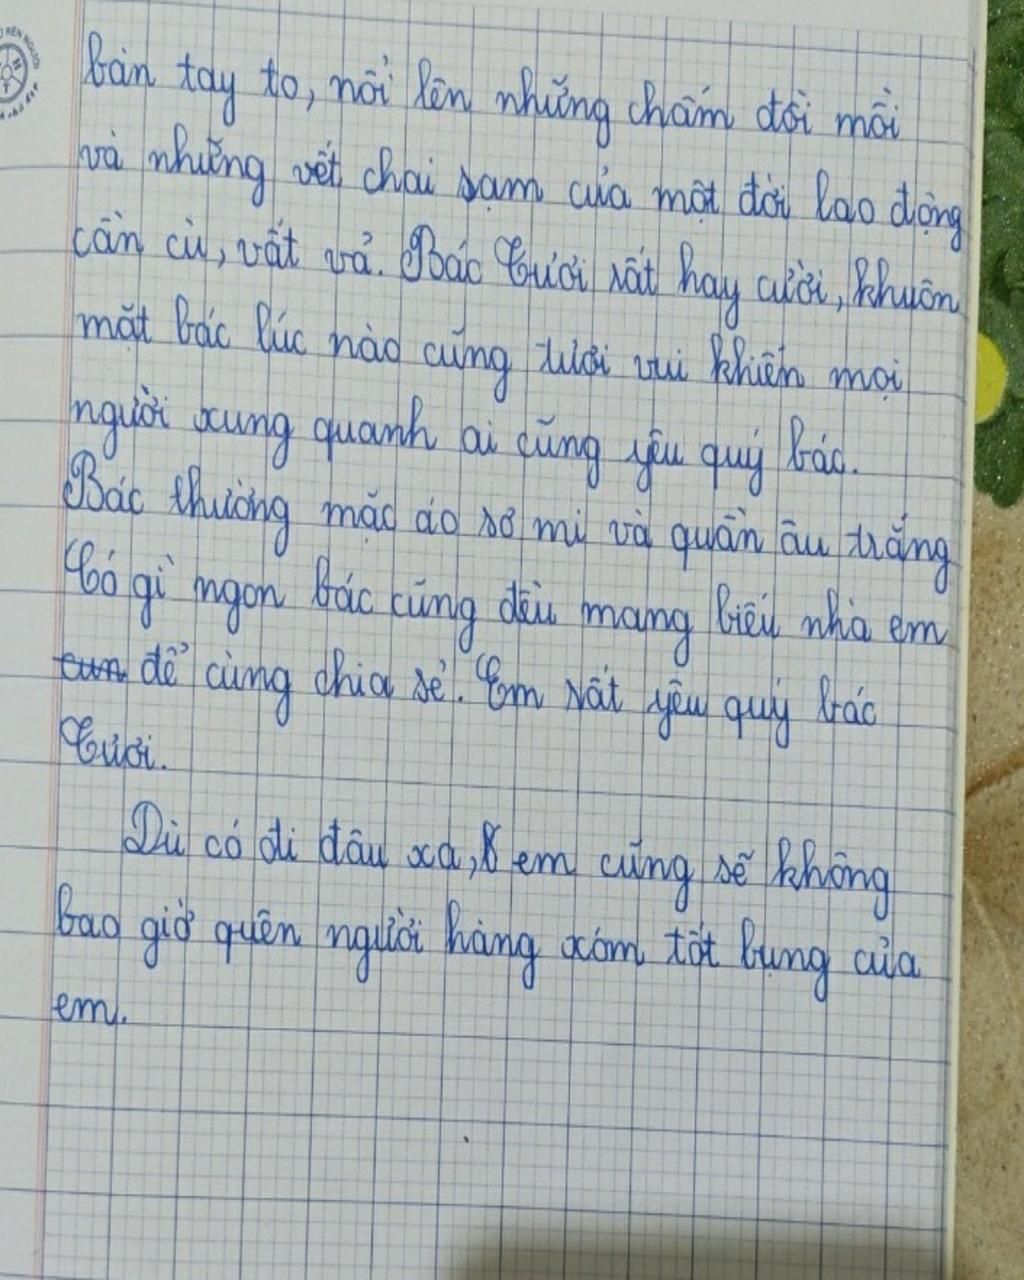 bàn tay to, nổi lên những chấm đồi mồi
và những vết chai sạm của một đời lao động
cần cù, vất vả. Bác Cươi rất hay cười, khuôn
mặt bác lúc nào cũng tươi vui khiến mọi
người xung quanh ai cũng yêu quý bác.
Bác thường mặc áo sơ mi và quần âu trắng
Có gì ngon bác cũng đều mang biếu nhà em
để cùng chia sẻ. Em rất yêu quý bác
Cươi.
Dù có đi đâu xa, em cũng sẽ không
bao giờ quên người hàng xóm tốt bụng của
em.